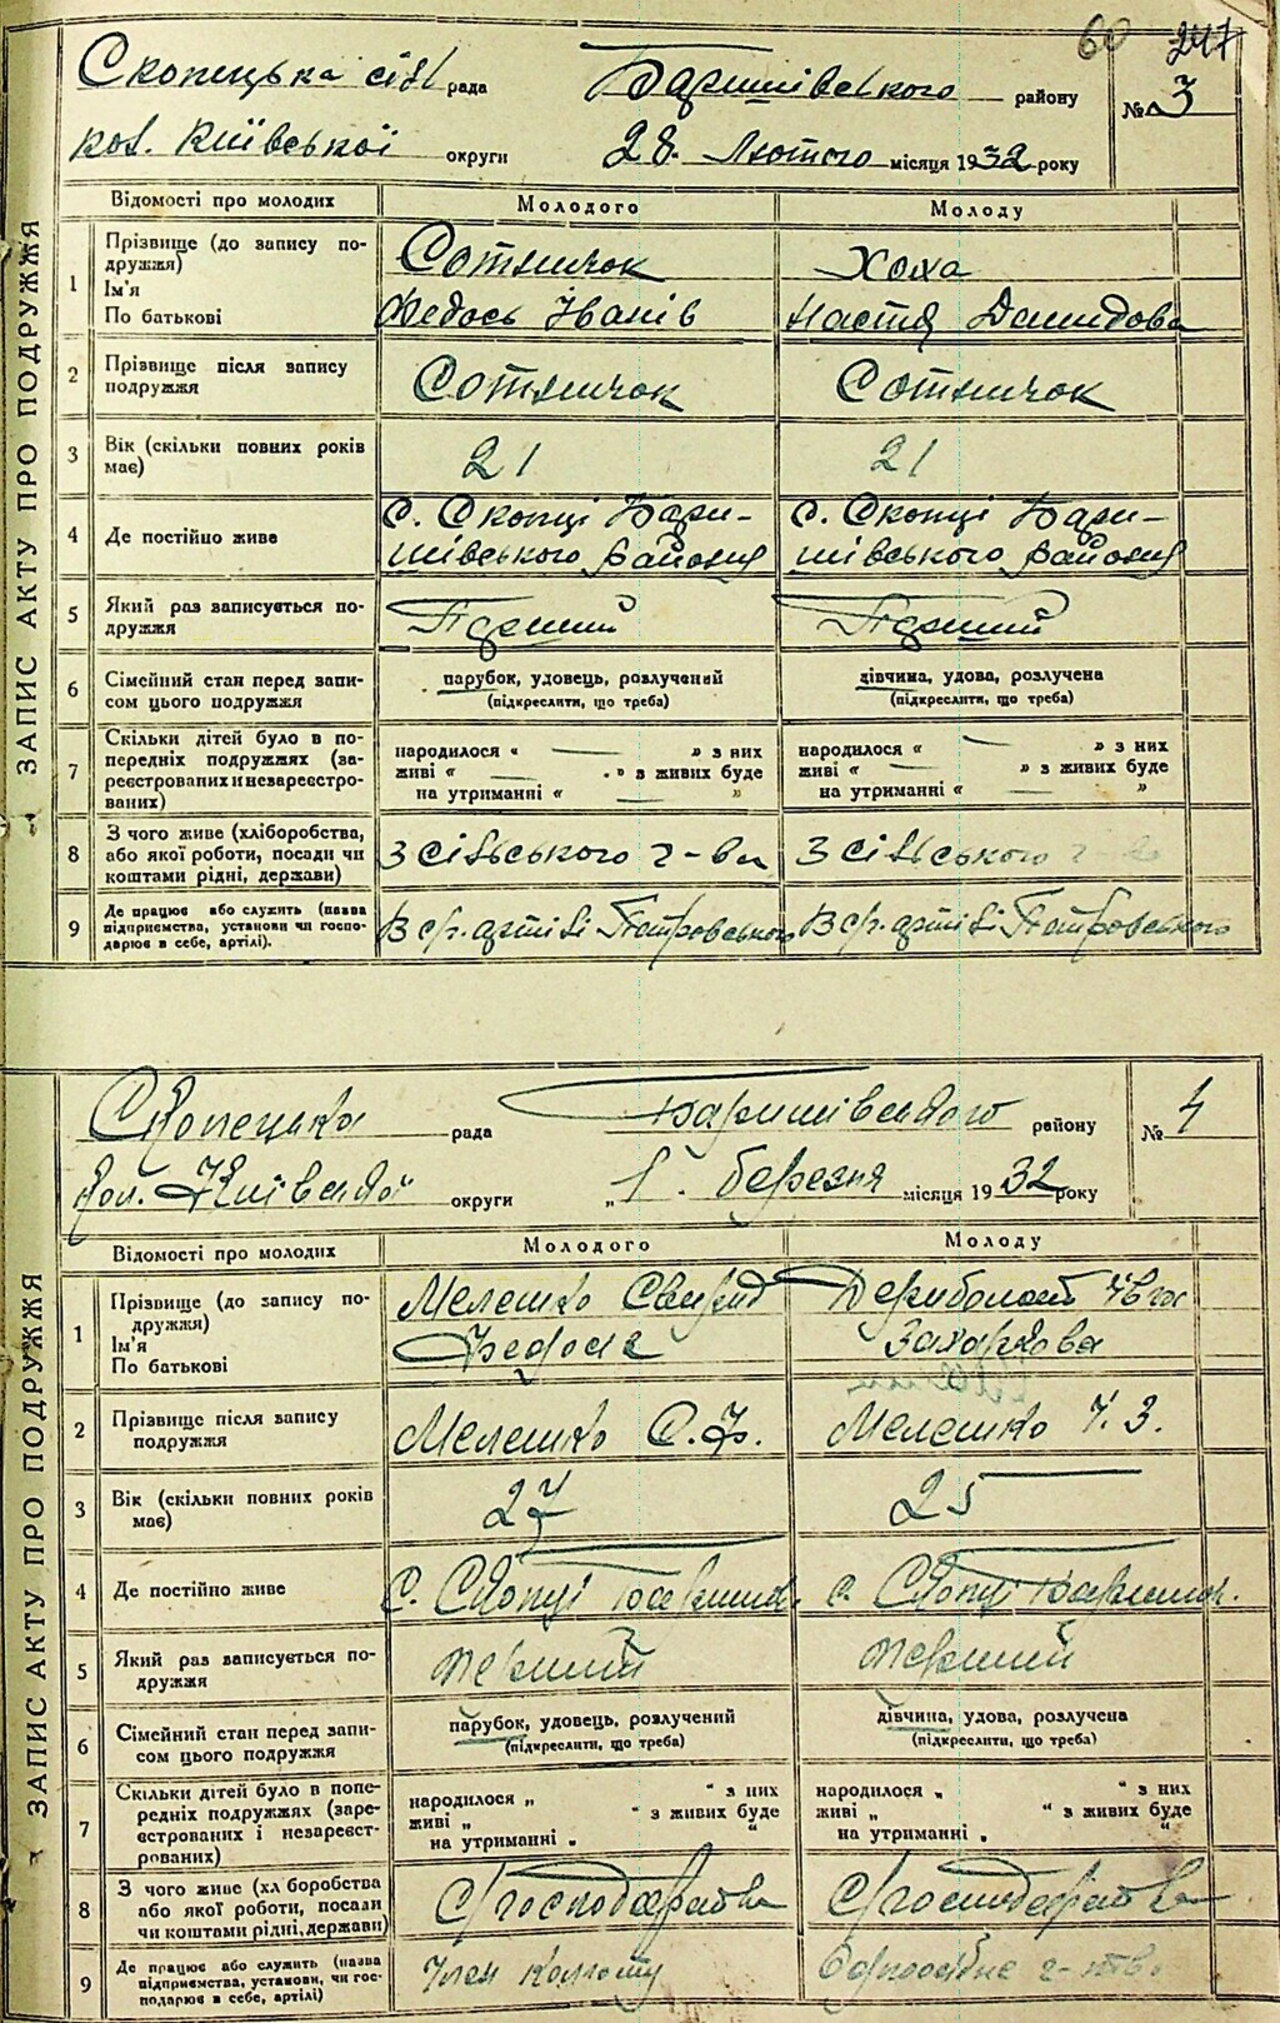 60 247
Скопецька сіль рада Баришівського району № 3
кол. Київської округи 28. Лютого місяця 1932 року
ЗАПИС АКТУ ПРО ПОДРУЖЖЯ
Відомості про молодих Молодого Молоду
1 Прізвище (до запису по-
дружжя)
Ім'я
По батькові
Сотничок
Федось Іванів
Хоха
Настя Демидова
2 Прізвище після запису
подружжя
Сотничок Сотничок
3 Вік (скільки повних років
має)
21 21
4 Де постійно живе
с. Скопці Бари-
шівського району
с. Скопці Бари-
шівського району
5 Який раз записується по-
дружжя
Перший Перший
6 Сімейний стан перед запи-
сом цього подружжя
парубок, удовець, розлучений
(підкреслити, що треба)
дівчина, удова, розлучена
(підкреслити, що треба)
7 Скільки дітей було в по-
передніх подружжях (за-
реєстрованих и незареєстро-
ваних)
народилося « — » з них
живі « — » з живих буде
на утриманні « — »
народилося « — » з них
живі « — » з живих буде
на утриманні « — »
8 З чого живе (хліборобства,
або якої роботи, посади чи
коштами рідні, держави)
З сільського г-ва З сільського г-ва
9 Де працює або служить (назва
підприємства, установи чи госпо-
дарює в себе, артілі).
В с/г. артілі Петровського В с/г. артілі Петровського
Скопецька рада Баришівського району № 4
кол. Київської округи „1". березня місяця 1932 року
ЗАПИС АКТУ ПРО ПОДРУЖЖЯ
Відомості про молодих Молодого Молоду
1 Прізвище (до запису по-
дружжя)
Ім'я
По батькові
Мелешко Свирид
Федос
Дериболот Ївга
Захаркова
2 Прізвище після запису
подружжя
Мелешко С. Ф. Мелешко Ї. З.
3 Вік (скільки повних років
має)
27 25
4 Де постійно живе
с. Скопці Баришів. с. Скопці Баришів.
5 Який раз записується по-
дружжя
перший перший
6 Сімейний стан перед запи-
сом цього подружжя
парубок, удовець, розлучений
(підкреслити, що треба)
дівчина, удова, розлучена
(підкреслити, що треба)
7 Скільки дітей було в попе-
редніх подружжях (заре-
єстрованих і незареєст-
рованих)
народилося „ “ з них
живі „ “ з живих буде
на утриманні „ “
народилося „ “ з них
живі „ “ з живих буде
на утриманні „ “
8 З чого живе (хл боробства
або якої роботи, посади
чи коштами рідні, держави)
С/господарства С/господарства
9 Де працює або служить (назва
підприємства, установи, чи гос-
подарює в себе, артілі)
Член колгоспу Одноосібне г-тв.